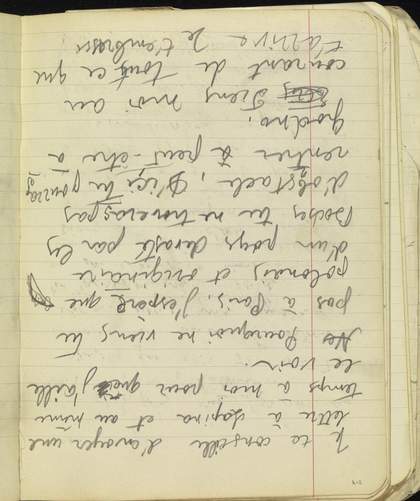 Je te conseille d'envoyer une
lettre à Lapina et au même
temps à moi pour que j'aille
le voir.
Pourquoi ne viens tu
pas à Paris, j'espère que
polonais et originaire
d'un pays devasté par les
boches tu ne trouveras pas
d'obstacle, d'ici tu pourras
rentrer à peut-être à
grodno.
Tiens moi au
courant de tout ce que
t'arrive Je t'embrasse